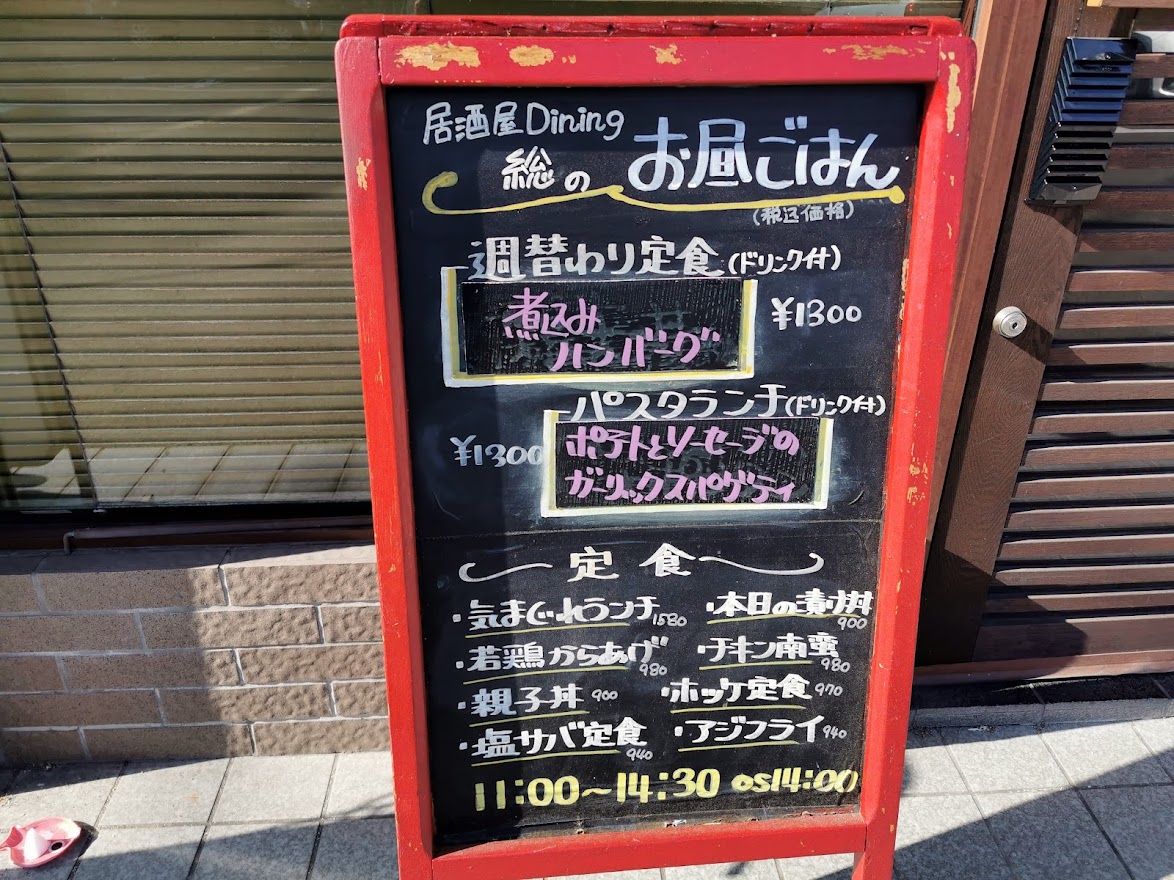 居酒屋Dining
総の お昼ごはん
(税込価格)
週替わり定食(ドリンク付)
煮込み
ハンバーグ
¥1300
パスタランチ(ドリンク付)
¥1300
ポテトとソーセージの
ガーリックスパゲティ
定食
・気まぐれランチ 1580
・本日の漬け丼 900
・若鶏からあげ 980
・チキン南蛮 980
・親子丼 900
・ホッケ定食 970
・塩サバ定食 940
・アジフライ 940
11:00〜14:30 os14:00